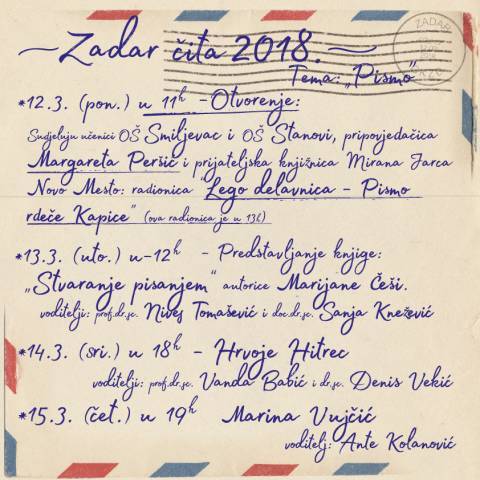 Zadar čita 2018.
ZADAR
Tema: „Pismo"
*12.3. (pon.) u 11h - Otvorenje:
Sudjeluju učenici OŠ Smiljevac i OŠ Stanovi, pripovjedačica
Margareta Peršić i prijateljska knjižnica Mirana Jarca
Novo Mesto: radionica Lego delavnica - Pismo
rdeče Kapice" (ova radionica je u 13h)
*13.3. (uto.) u-12h - Predstavljanje knjige:
„Stvaranje pisanjem" autorice Marijane Češi.
voditelji: prof.dr.sc. Nives Tomašević i doc.dr.sc. Sanja Knežević
*14.3. (sri.) u 18h - Hrvoje Hitrec
voditelji: prof.dr.sc. Vanda Babić i dr.sc. Denis Vekić
*15.3. (čet.) u 19h Marina Vujčić
voditelj: Ante Kolanović